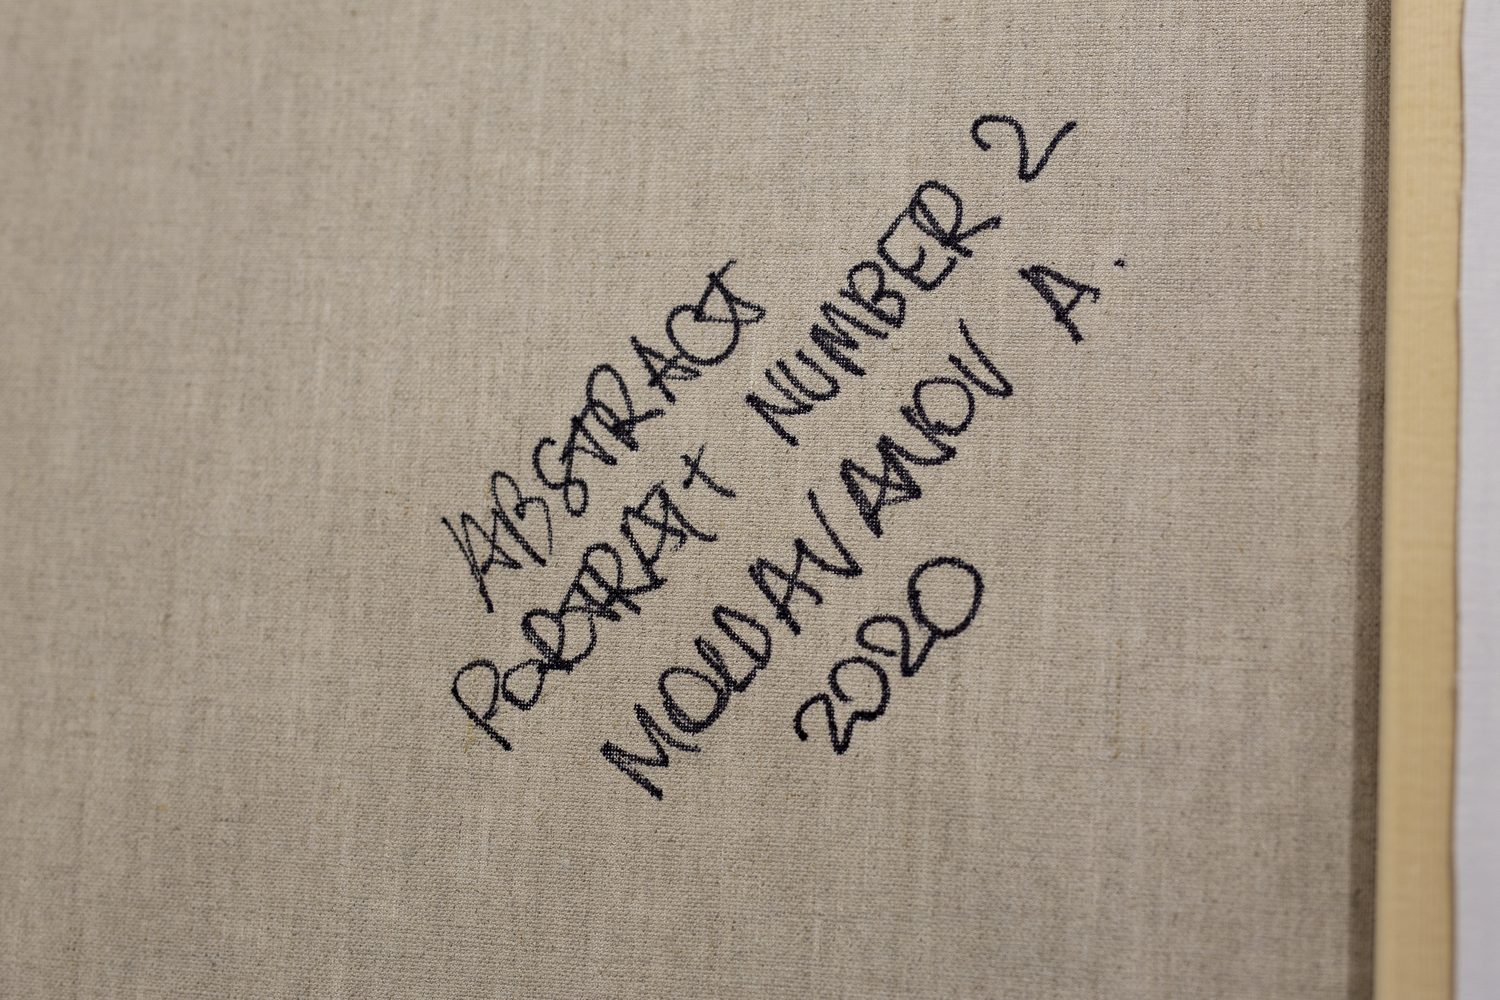 ABSTRACT
PORTRAIT NUMBER 2
MOLDAVANOV A.
2020